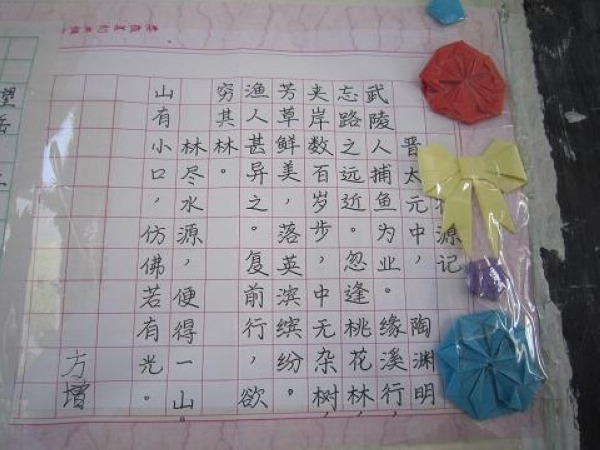 源记
晋太元中，陶渊明
武陵人捕鱼为业。缘溪行，
忘路之远近。忽逢桃花林，
夹岸数百岁步，中无杂树，
芳草鲜美，落英滨缤纷。
渔人甚异之。复前行，欲
穷其林。
林尽水源，便得一山。
山有小口，仿佛若有光。
方增
望岳